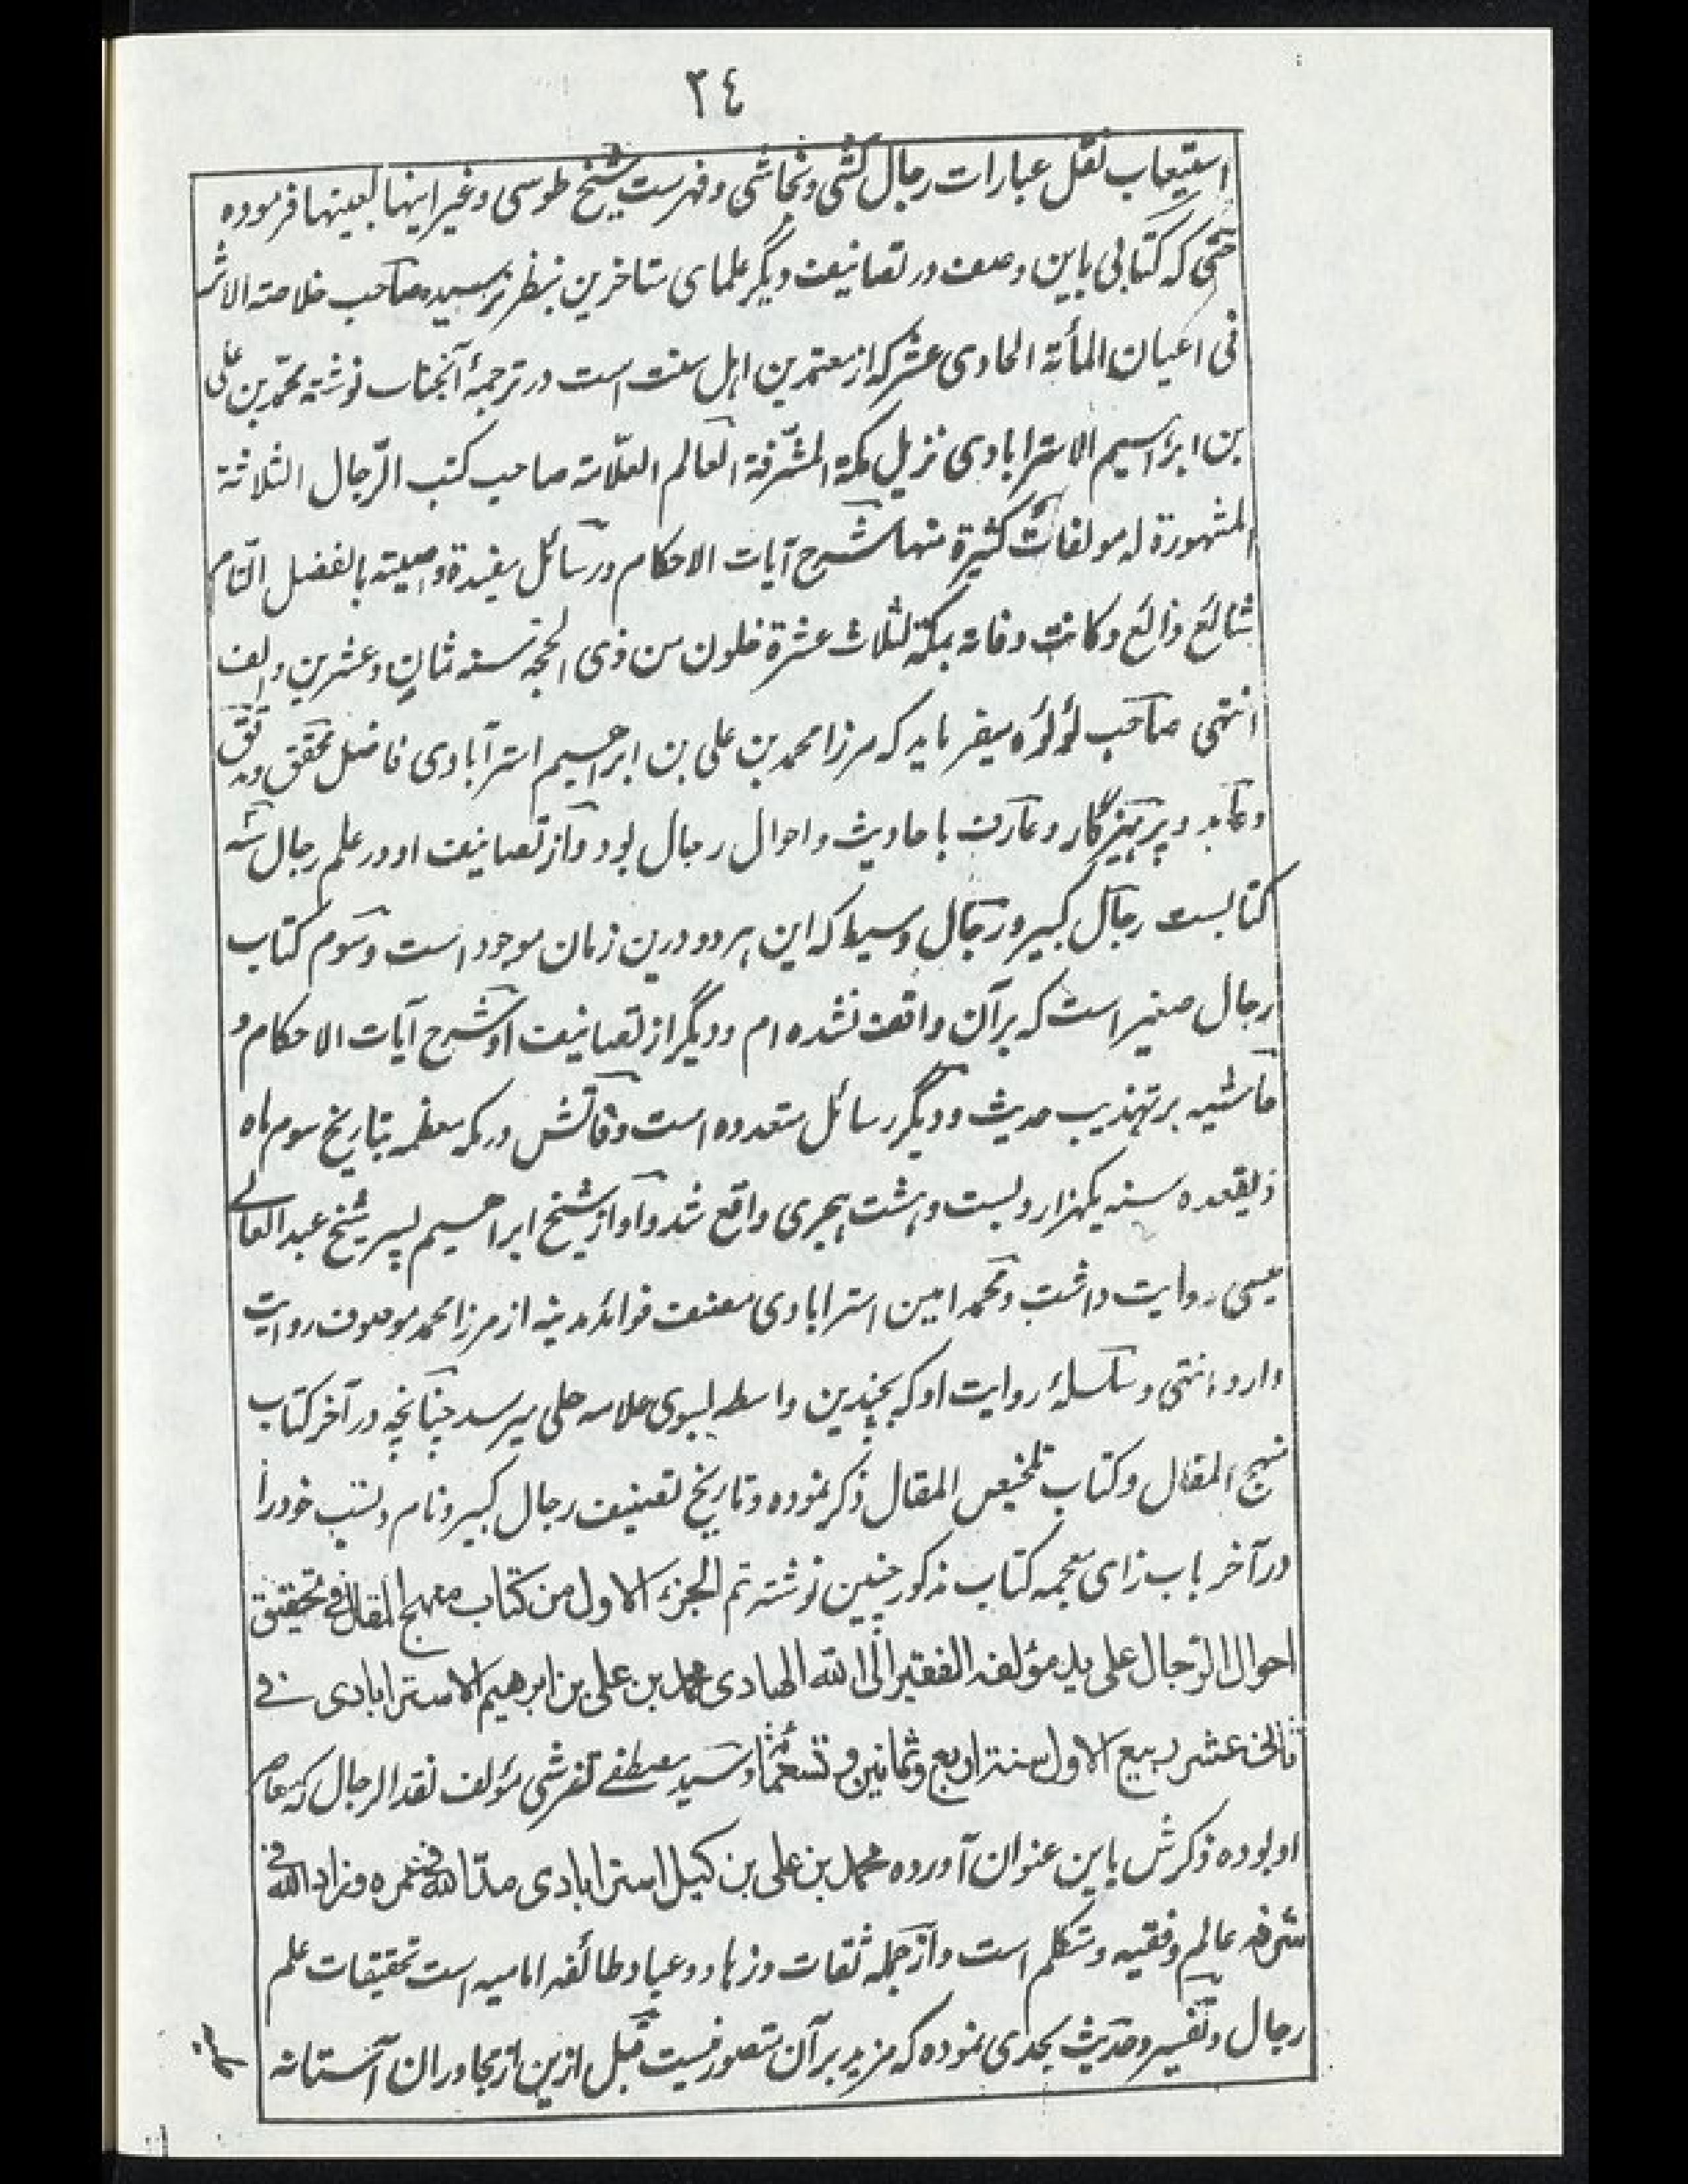 ٣٤
استیعاب نقل عبارات رجال کشی ونجاشی وفهرست شیخ طوسی وغیر اینها بعینها فرموده
حتی که کتابی باین وصف در تصانیف دیگر علمای متاخرین بنظر نرسیده صاحب خلاصته الاثر
فی اعیان المأنه الحادی عشر که از معتمدین اهل سنت است در ترجمهٔ آنجناب نوشته محمد بن علی
بن ابراهیم الاسترابادی نزیل مکة المشرّفة العالم العلّامة صاحب کتب الرّجال الثلاثة
المشهورة له مولفات کثیرة منها شرح آیات الاحکام ورسائل مفیدة وصیته بالفضل التام
شائع ذائع وکانت وفاته بمکة لثلاث عشرة خلون من ذی الحجه سنه ثمان وعشرین والف
انتهی صاحب لؤلؤه میفرماید که مرزا محمد بن علی بن ابراهیم استرآبادی فاضل محقق ومدقق
وعابد وپرهیزگار وعارف باحادیث واحوال رجال بود واز تصانیف او در علم رجال سه
کتابست رجال کبیر ورجال وسیط که این هر دو درین زمان موجود است وسوم کتاب
رجال صغیر است که بر آن واقف نشده ام ودیگر از تصانیف او شرح آیات الاحکام و
حاشیه بر تهذیب حدیث ودیگر رسائل متعدده است وفاتش در مکه معظمه بتاریخ سوم ماه
ذیقعده سنه یکهزار وبست وهشت هجری واقع شد واو از شیخ ابراهیم پسر شیخ عبد العالی
میسی روایت داشت ومحمد امین استرابادی مصنف فوائد مدینه از مرزا محمد موصوف روایت
دارد انتهی وسلسلهٔ روایت او که بچندین واسطه بسوی علامه حلی میرسد چنانچه در آخر کتاب
منهج المقال وکتاب تلخیص المقال ذکر نموده وتاریخ تصنیف رجال کبیر ونام ونسب خود را
در آخر باب زای معجمه کتاب مذکور چنین نوشته تم الجزء الاول من کتاب منهج المقال فی تحقیق
احوال الرّجال علی ید مؤلفه الفقیر الی الله الهادی محمد بن علی بن ابرهیم الاسترابادی فی
ثالث عشر ربیع الاول سنة اربع وثمانین وتسعمائة وسید مصطفی تفرشی مؤلف نقد الرجال که معاصر
او بوده ذکرش باین عنوان آورده محمد بن علی بن کیل استرابادی مدّ الله فی عمره وزاد الله فی
شرفه عالم وفقیه ومتکلم است واز جمله ثقات وزهاد وعباد طائفه امامیه است تحقیقات علم
رجال وتفسیر وحدیث بحدی نموده که مزید بر آن متصور نیست قبل ازین از مجاوران آستانه